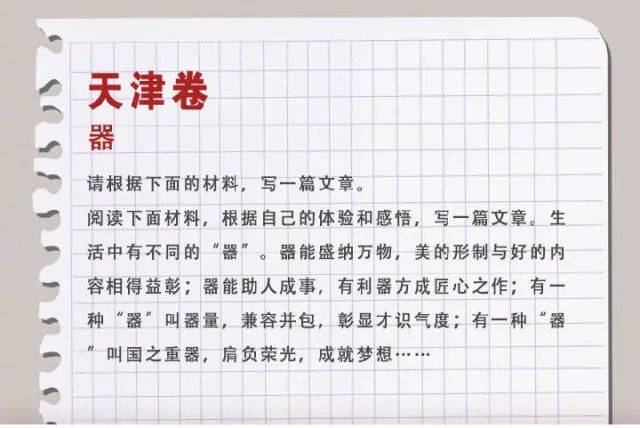 天津卷
器
请根据下面的材料，写一篇文章。
阅读下面材料，根据自己的体验和感悟，写一篇文章。生
活中有不同的“器”。器能盛纳万物，美的形制与好的内
容相得益彰；器能助人成事，有利器方成匠心之作；有一
种“器”叫器量，兼容并包，彰显才识气度；有一种“器
”叫国之重器，肩负荣光，成就梦想……